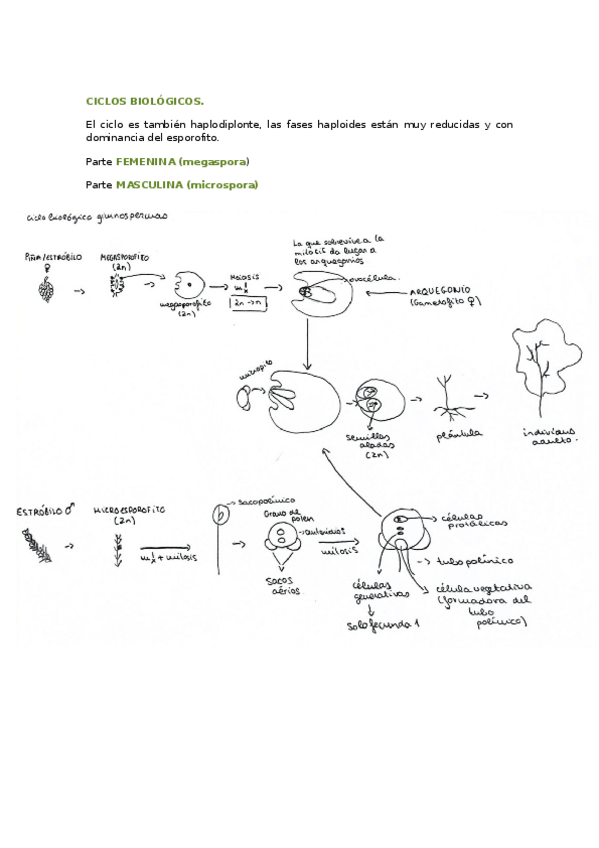 CICLOS BIOLÓGICOS.
El ciclo es también haplodiplonte, las fases haploides están muy reducidas y con
dominancia del esporofito.
Parte FEMENINA (megaspora)
Parte MASCULINA (microspora)
ciclo biológico gimnospermas
PIÑA/ESTRÓBILO
♀
MEGASPOROFITO
(2n)
megasporofito
(2n)
Meiosis
2n → n
La que sobrevive a la
mitosis da lugar a
los arquegonios
ovocélula.
ARQUEGONIO
(Gametofito ♀)
micropilo
semillas
aladas
(2n)
plántula
individuo
adulto.
ESTRÓBILO ♂
MICROESPOROFITO
(2n)
+ mitosis
saco polínico
Grano de
polen
mitosis
sacos
aéreos
células
protálicas
tubo polínico
célula vegetativa
(formadora del
tubo
polínico)
células
generativas
solo fecunda 1